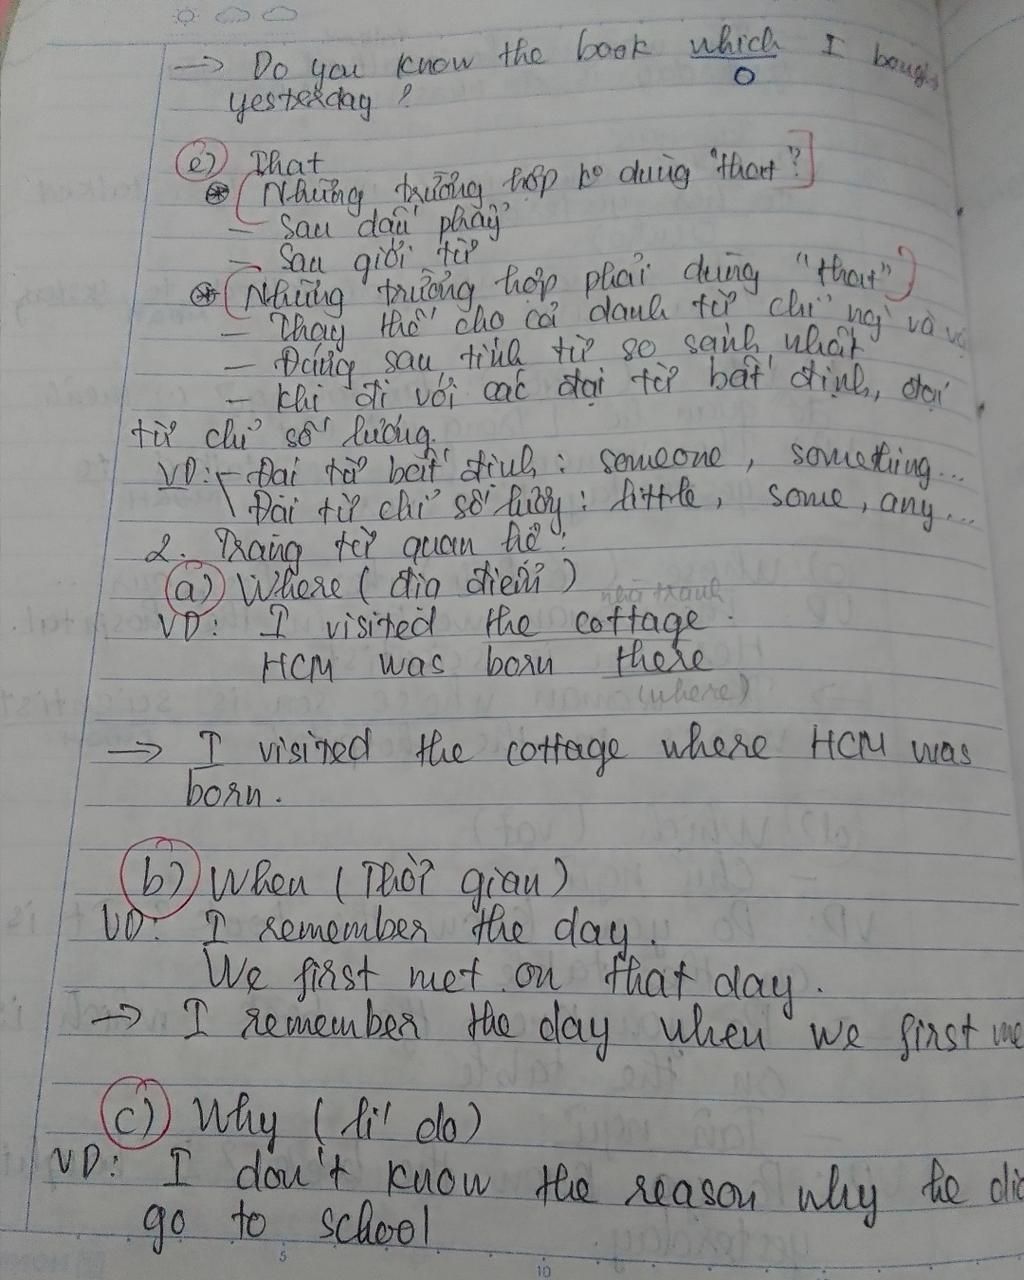 → Do you know the book which I bough
O
yesterday ?
e) That
⊛ (Những trường hợp ko dùng "that"?]
- Sau dấu phẩy
- Sau giới từ
⊛ (Những trường hợp phải dùng "that")
- Thay thế cho cả danh từ chỉ ng` và vậ
- Đứng sau tính từ so sánh nhất
- Khi đi với các đại từ bất định, đại
từ chỉ số lượng.
VD: - Đại từ bất định : someone, something...
\ Đại từ chỉ số lượng : little, some, any...
2. Trạng từ quan hệ :
a) Where (địa điểm)
nhà tranh
VD: I visited the cottage.
HCM was born there
(where)
→ I visited the cottage where HCM was
born.
b) When (Thời gian)
VD: I remember the day.
We first met on that day.
→ I remember the day when we first me
c) Why (lí do)
VD: I don't know the reason why he did
go to school